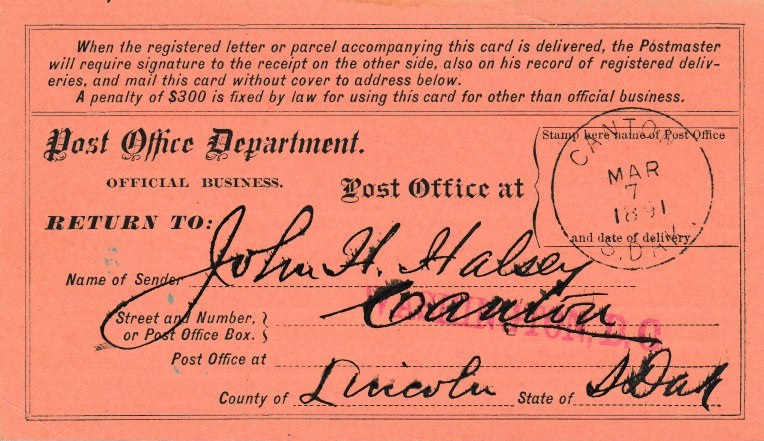 When the registered letter or parcel accompanying this card is delivered, the Postmaster
will require signature to the receipt on the other side, also on his record of registered deliv-
eries, and mail this card without cover to address below.
A penalty of $300 is fixed by law for using this card for other than official business.
Post Office Department.
OFFICIAL BUSINESS.
Post Office at
Stamp here name of Post Office
CANTON
MAR
7
1891
and date of delivery.
S. DAK.
RETURN TO:
Name of Sender John H. Halsey
Street and Number,
or Post Office Box.
Canton
WASHINGTON, D.C.
Post Office at
County of Lincoln State of S Dak